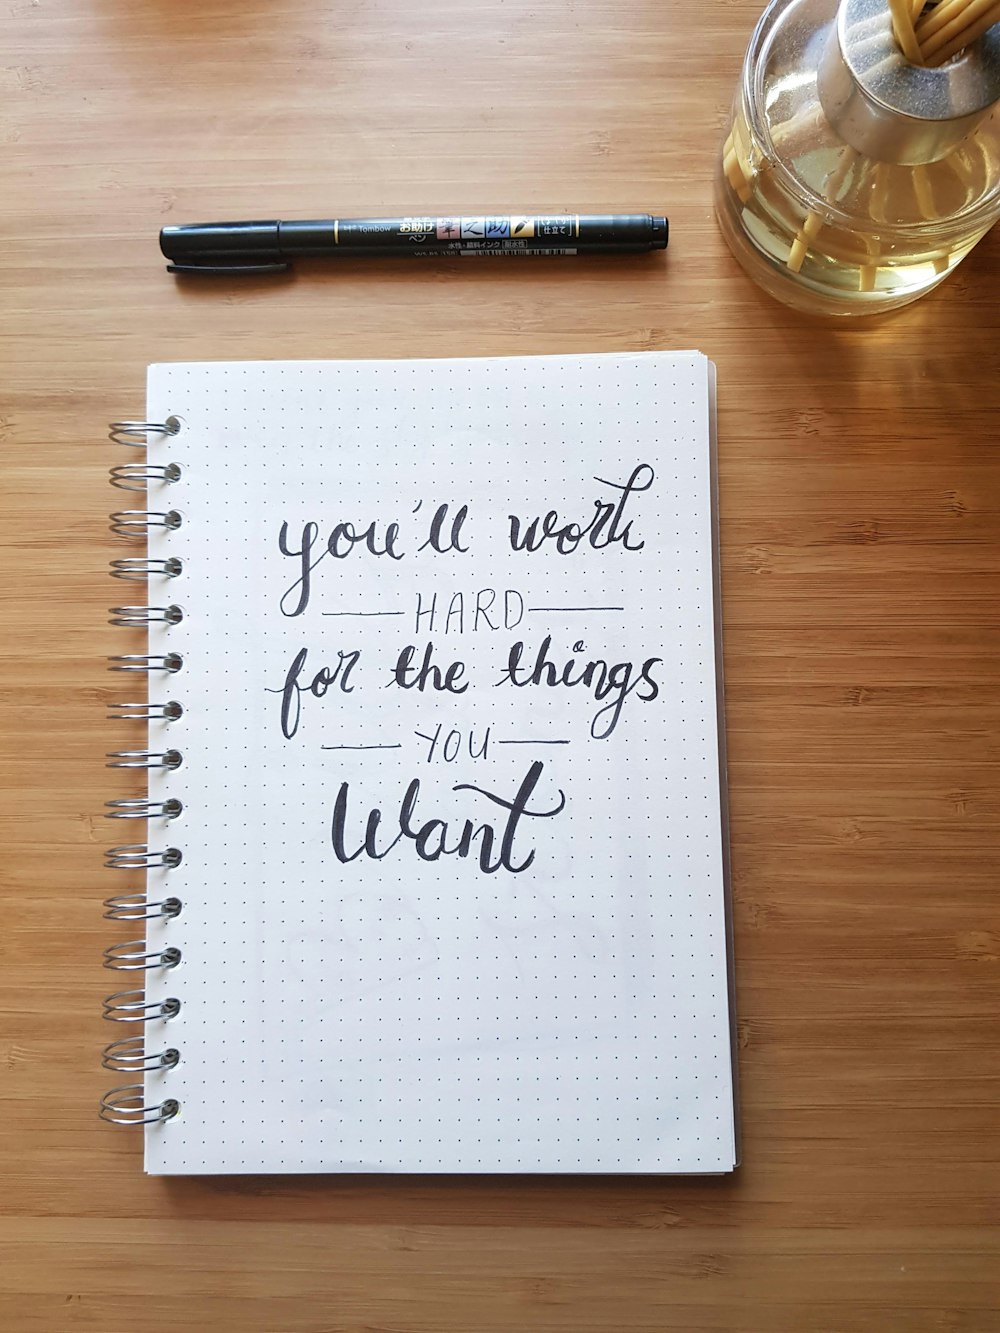 Tombow お助け 筆之助 しっかり仕立て
水性・顔料インク
you'll work
HARD
for the things
YOU
Want